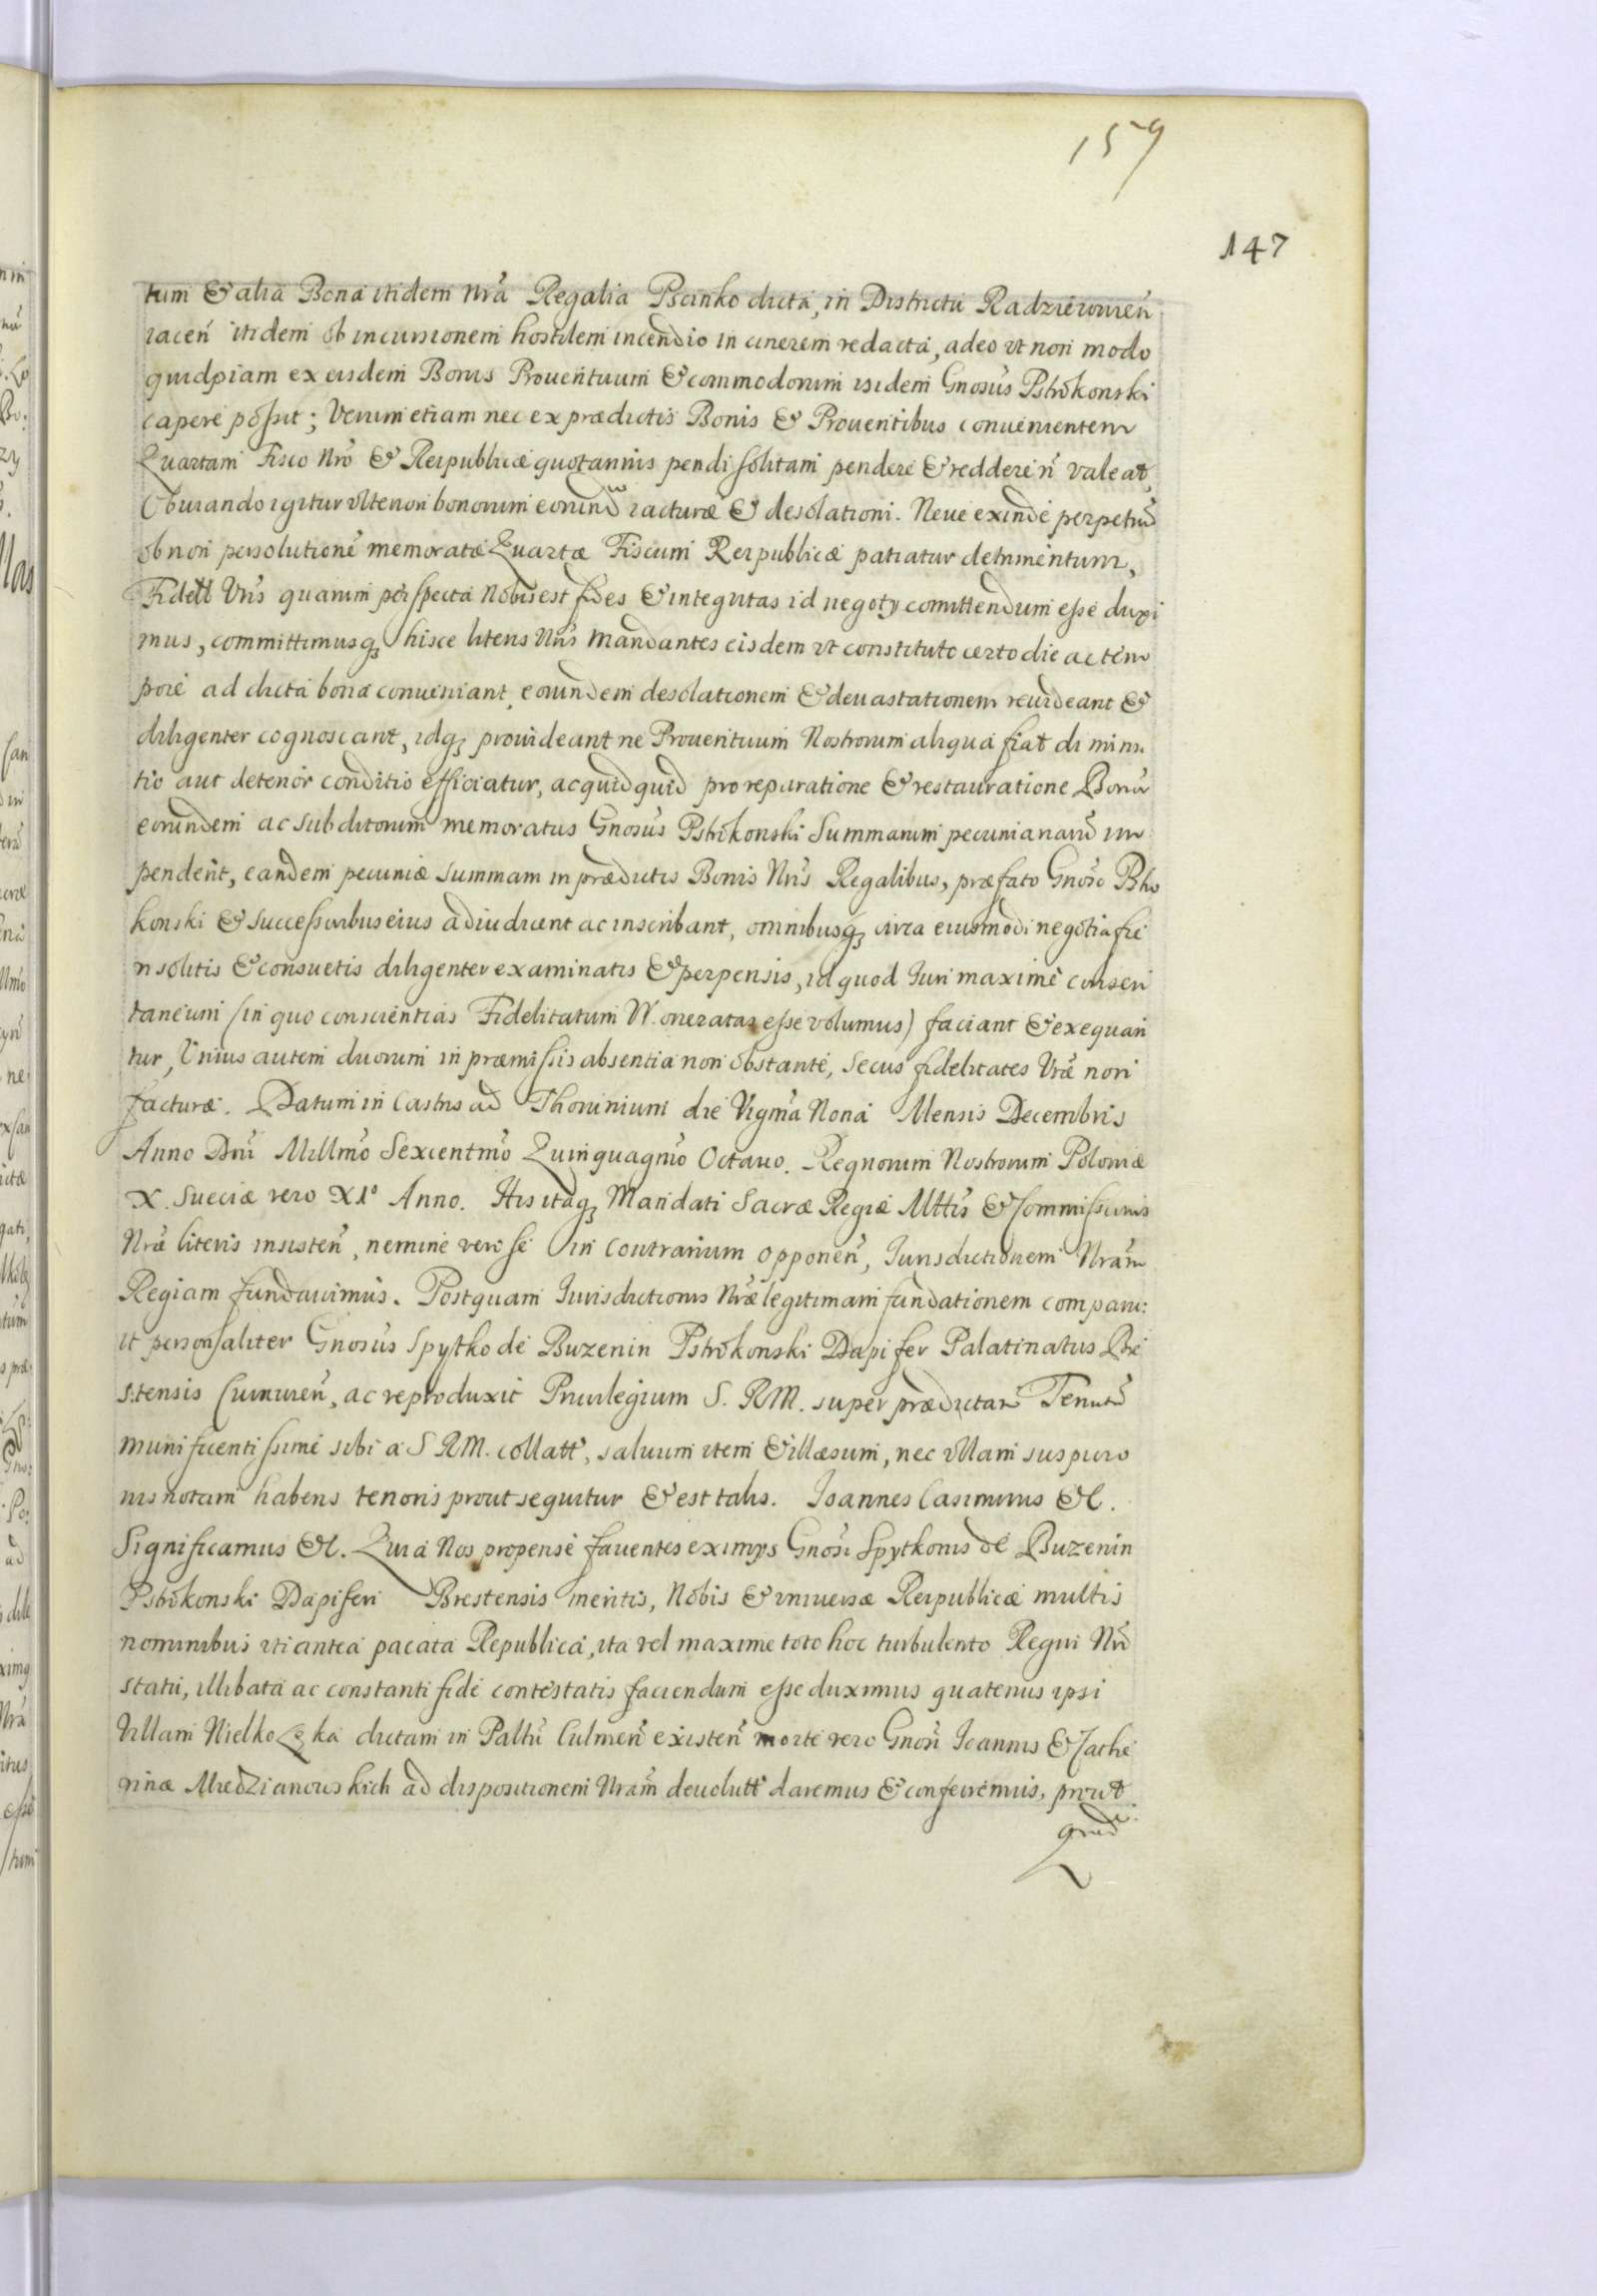 159
147
tum & alia Bona itidem Nrã Regalia Pscinko dicta, in Districtu Radzieiouień
iaceñ itidem ob incursionem hostilem incendio in cinerem redacta, adeo vt non modo
quidpiam ex eisdem Bonis Prouentuum & commodorum isidem Gnosus Pstrokonski
capere possit; Verum etiam nec ex prædictis Bonis & Prouentibus conuenientem
Quartam Fisco Nrõ & Reipublicæ quotannis pendi solitam pendere & reddere ñ valeat,
Obuiando igitur vlteriori bonorum eorund iacturæ & desolationi. Neue exinde perpetuũ
ob non persolutionẽ memoratæ Quartæ Fiscum Reipublicæ patiatur detrimentum,
Fidett Vris quarum perspecta Nobis est fides & integritas id negoty comittendum esse duxi
mus, committimusq hisce literis Nris mandantes eisdem vt constituto certo die ac tem
pore ad dicta bona conueniant, eorundem desolationem & deuastationem reuideant &
diligenter cognoscant, idq prouideant ne Prouentuum Nostrorum aliqua fiat di minu
tio aut deterior conditio efficiatur, ac quidquid pro reparatione & restauratione Bonor
eorundem ac subditorum memoratus Gnosus Pstrokonski Summarum pecuniariarũ im
penderit, eandem pecuniæ summam in prædictis Bonis Nris Regalibus, præfato Gnoso Pstro
konski & successoribus eius adiudicent ac inscribant, omnibusq circa eiusmodi negotia fie
ri solitis & consuetis diligenter examinatis & perpensis, id quod Iuri maxime consen
taneum (in quo conscientias Fidelitatum W. oneratas esse volumus) faciant & exequan
tur, Vnius autem duorum in præmissis absentia non obstante, secus fidelitates Vræ non
facturæ. Datum in Castris ad Thorunium die Vigma Nona Mensis Decembris
Anno Dni Millmo Sexcentmo Quinquagmo Octauo. Regnorum Nostrorum Poloniæ
X. Sueciæ vero XIº Anno. His itaq Mandati Sacræ Regiæ Mttis & Commissionis
Nræ literis insisteñ, nemine vero se in contrarium opponeñ, Iurisdictionem Nram
Regiam fundauimus. Postquam Iurisdictionis Nræ legitimam fundationem comparu:
it personaliter Gnosus Spytko de Buzenin Pstrokonski Dapifer Palatinatus Bre
stensis Cuiauień, ac reproduxit Priuilegium S. RM. super prædictam Tenutã
munificentissime sibi a S RM. collatt, saluum item & illæsum, nec vllam suspicio
nis notam habens tenoris prout sequitur & est talis. Ioannes Casimirus &c.
Significamus &c. Quia Nos propense fauentes eximys Gnosi Spytkonis de Buzenin
Pstrokonski Dapiferi Brestensis meritis, Nobis & vniuersæ Reipublicæ multis
nominibus vti antea pacata Republica, ita vel maxime toto hoc turbulento Regni Nri
statu, illibata ac constanti fide contestatis faciendum esse duximus quatenus ipsi
Villam Nielko Łąka dictam in Paltu Culmeñ existeñ morte vero Gnor Ioannis & Cathe
rinæ Miedzianowskich ad dispositionem Nram deuolutt daremus & conferremus, prout